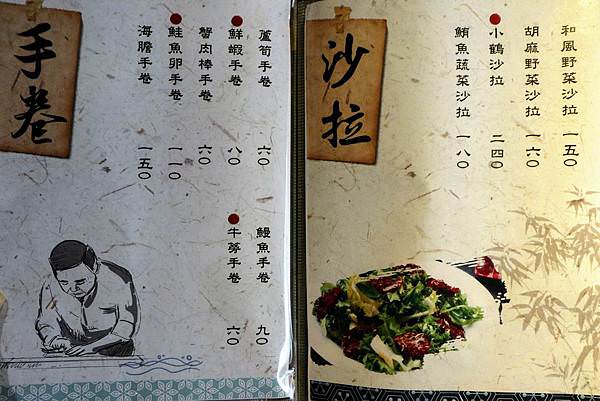 沙拉
和風野菜沙拉 一五〇
胡麻野菜沙拉 一六〇
小鶴沙拉 二四〇
鮪魚蔬菜沙拉 一八〇
手卷
蘆筍手卷 六〇
鮮蝦手卷 八〇
蟹肉棒手卷 六〇
鮭魚卵手卷 一一〇
海膽手卷 一五〇
鰻魚手卷 九〇
牛蒡手卷 六〇